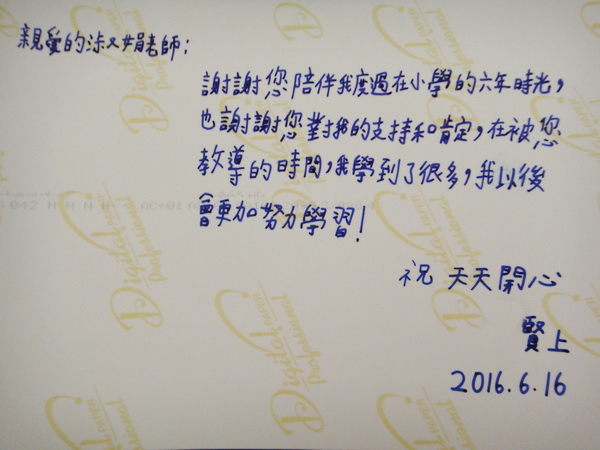 親愛的淑娟老師:
謝謝您陪伴我度過在小學的六年時光,
也謝謝您對我的支持和肯定,在被您
教導的時間,我學到了很多,我以後
會更加努力學習!
祝 天天開心
賢上
2016.6.16
Digital
Professional